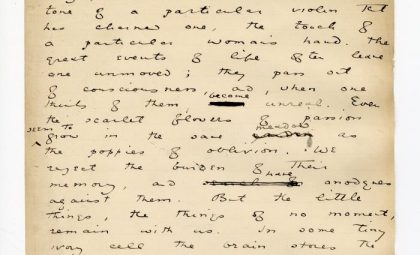 tone of a particular violin that
has charmed one, the touch of
a particular woman's hand. The
great events of life often leave
one unmoved; they pass out
of consciousness, and, when one
thinks of them, become unreal. Even
the scarlet flowers of passion
seem to grow in the same meadow as
the poppies of oblivion. We
reject the burden of their
memory, and have anodynes
against them. But the little
things, the things of no moment,
remain with us. In some tiny
ivory cell the brain stores the